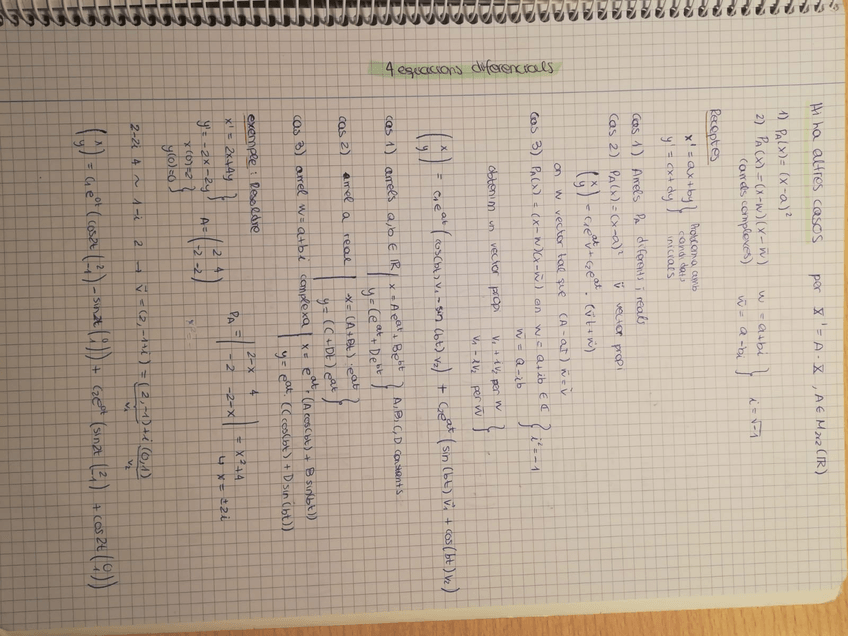 4 equacions diferencials
Hi ha altres casos per X' = A · X, A ∈ M2x2(IR)
1) PA(x) = (x-a)²
2) PA(x) = (x-w)(x-w̄) w = a+bi } i = √-1
(arrels complexes) w̄ = a-bi
Receptes
x' = ax+by } Problema amb
y' = cx+dy } condicions
inicials
Cas 1) Arrels PA diferents i reals
Cas 2) PA(x) = (x-a)² v̄ vector propi
(x y) = c1e^at v̄ + c2e^at · (v̄t + w̄)
on w vector tal que (A-aI) w̄ = v̄
Cas 3) PA(x) = (x-w)(x-w̄) on w = a+ib ∈ C } i² = -1
w̄ = a-ib
obtenim un vector propi v1 + iv2 per w }
v1 - iv2 per w̄ }
(x y) = c1e^at (cos(bt)v1 - sin(bt)v2) + c2e^at (sin(bt)v1 + cos(bt)v2)
cas 1) arrels a,b ∈ IR | x = Ae^at + Be^bt } A, B, C, D constants
y = (e^at + De^bt
cas 2) arrel a real | x = (A+Bt) · e^at }
y = (C+Dt) e^at }
cas 3) arrel w = a+bi complexa | x = e^at · (A cos(bt) + B sin(bt))
y = e^at · (C cos(bt) + D sin(bt))
exemple: Resoldre
x' = 2x+4y }
y' = -2x-2y } A = (2 4 -2 -2) PA = |2-x 4 -2 -2-x| = x²+4
x(0) = 2 } ↳ x = ±2i
y(0) = 0 }
2-2i 4 ~ 1-i 2 → v̄ = (2, -1+i) = (2,-1) + i(0,1)
v1 v2
(x y) = c1e^0t (cos2t (2 -1) - sin2t (0 1)) + c2e^0t (sin2t (2 -1) + cos2t (0 1))